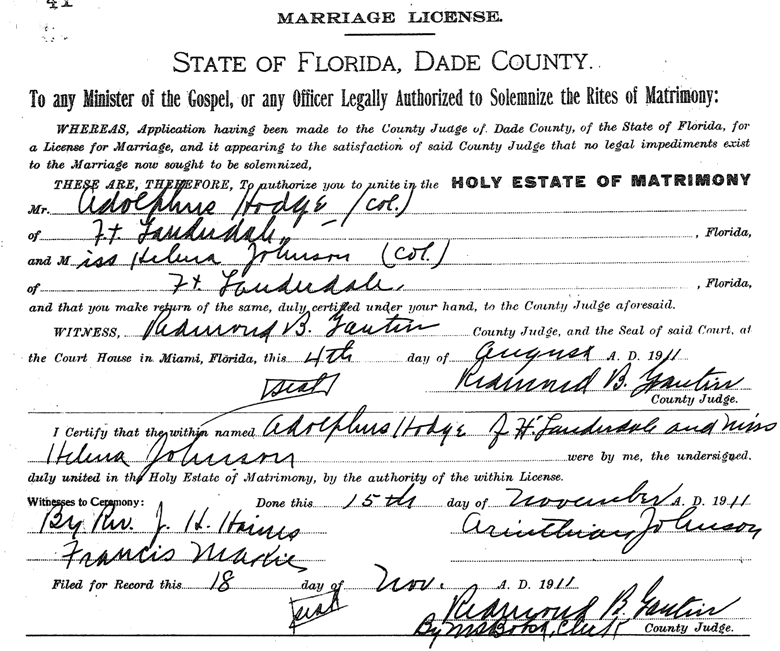 41
MARRIAGE LICENSE.
STATE OF FLORIDA, DADE COUNTY.
To any Minister of the Gospel, or any Officer Legally Authorized to Solemnize the Rites of Matrimony:
WHEREAS, Application having been made to the County Judge of Dade County, of the State of Florida, for
a License for Marriage, and it appearing to the satisfaction of said County Judge that no legal impediments exist
to the Marriage now sought to be solemnized,
THESE ARE, THEREFORE, To authorize you to unite in the HOLY ESTATE OF MATRIMONY
Mr. Adolphus Hodge (Col.)
of Ft Lauderdale, Florida,
and Miss Helena Johnson (Col.)
of Ft. Lauderdale, Florida,
and that you make return of the same, duly certified under your hand, to the County Judge aforesaid.
WITNESS, Redmond B. Gautier County Judge, and the Seal of said Court, at
the Court House in Miami, Florida, this 4th day of August A. D. 1911
Seal Redmond B. Gautier
County Judge.
I Certify that the within named Adolphus Hodge Ft Lauderdale and Miss
Helena Johnson were by me, the undersigned,
duly united in the Holy Estate of Matrimony, by the authority of the within License.
Witnesses to Ceremony: Done this 15th day of November A. D. 1911
By Rev. J. H. Haines Johnson
Francis
Filed for Record this 18 day of Nov. A. D. 1911
Seal Redmond B. Gautier
By Clerk County Judge.